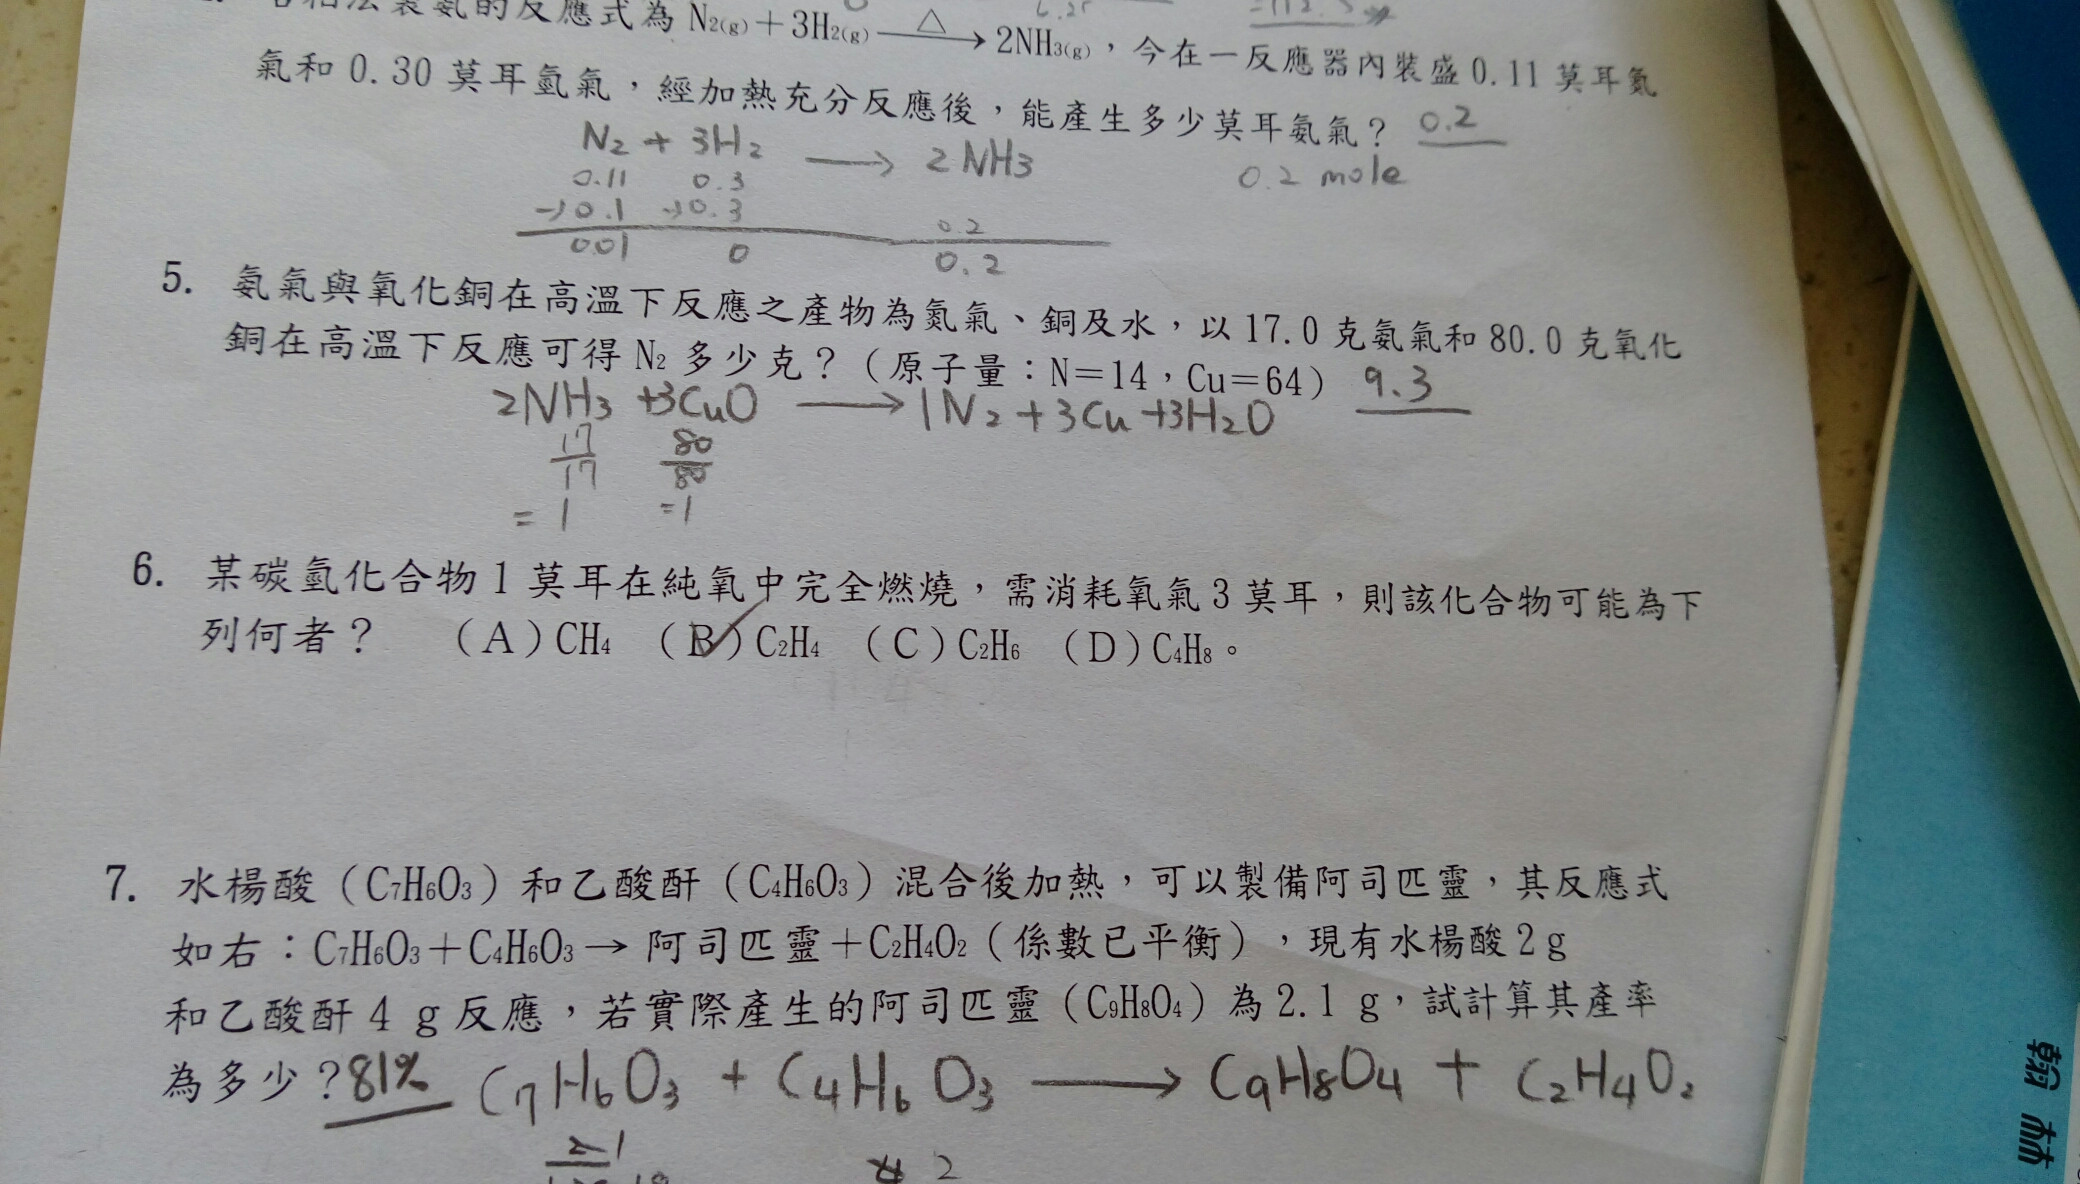 哈柏法製氨的反應式為 N2(g)＋3H2(g) △→ 2NH3(g)，今在一反應器內裝盛0.11 莫耳氮
氣和 0.30 莫耳氫氣，經加熱充分反應後，能產生多少莫耳氨氣？ 0.2
N2 + 3H2 → 2NH3
0.2 mole
0.11 0.3
-)0.1 -)0.3 0.2
0.01 0 0.2
5. 氨氣與氧化銅在高溫下反應之產物為氮氣、銅及水，以 17.0 克氨氣和 80.0 克氧化
銅在高溫下反應可得 N2 多少克？（原子量：N＝14，Cu＝64） 9.3
2NH3 +3CuO → 1N2 + 3Cu +3H2O
17 80
17 80
=1 =1
6. 某碳氫化合物 1 莫耳在純氧中完全燃燒，需消耗氧氣 3 莫耳，則該化合物可能為下
列何者？ （A）CH4 （B）C2H4 （C）C2H6 （D）C4H8。
7. 水楊酸（C7H6O3）和乙酸酐（C4H6O3）混合後加熱，可以製備阿司匹靈，其反應式
如右：C7H6O3＋C4H6O3→ 阿司匹靈＋C2H4O2（係數已平衡），現有水楊酸 2 g
和乙酸酐 4 g 反應，若實際產生的阿司匹靈（C9H8O4）為 2.1 g，試計算其產率
為多少？81% C7H6O3 + C4H6O3 → C9H8O4 + C2H4O2
翰林